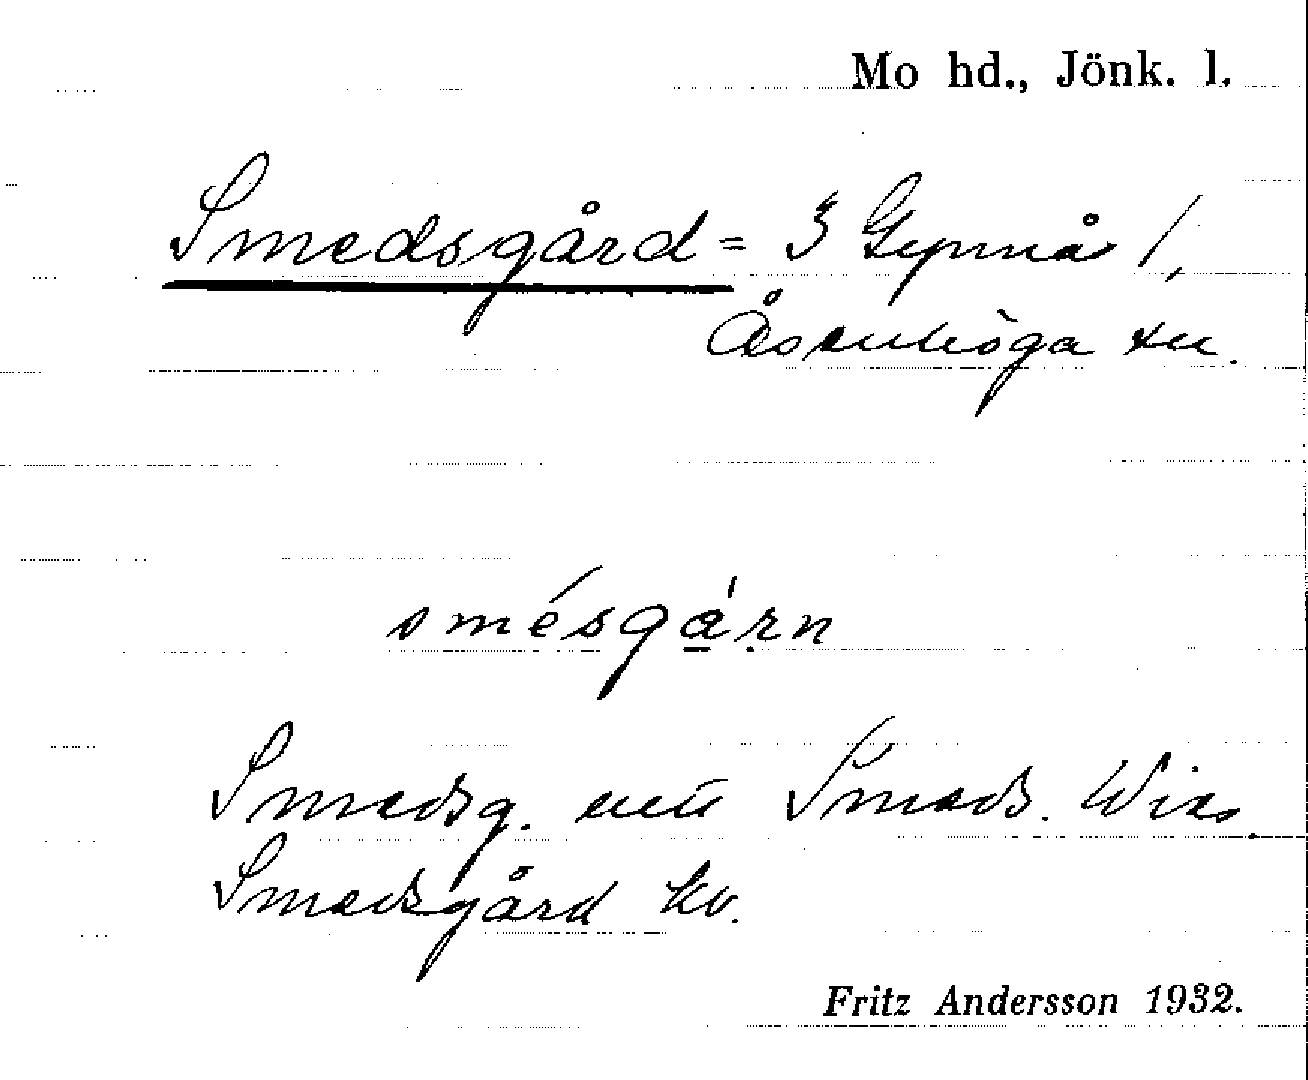 Mo hd., Jönk. l.
Smedsgård = 3 Gynnås /,
Åsenhöga sn.
smésgárn
Smedsg. Smeds. Wies.
Smedsgård kv.
Fritz Andersson 1932.